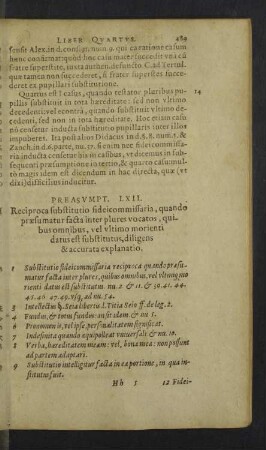 LIBER QUARTVS. 489
fensis Alex. in d. consign. num. 9. qui ea ratione casum
hunc confirmat quòd hoc casu mater succedit vna cũ
fratre superstite, iuxta authentic. defuncto C. ad Tertul.
quæ tamen non succederet, si frater superstes succe
deret ex pupillari substitutione.
Quartus est I casus, quando testator pluribus pu- 14
pillis substituit in tota hæreditate: sed non vltimo
decedenti, vel econtrà, quando substituit vltimo de-
cedenti, sed non in tota hæreditate. Hoc etiam casu
nõ censetur inducta substitutio pupillaris inter illos
impuberes. Ita post alios Didacus in d. §. 8. num. 1. &
Zanch. in d. 4. parte, nu. 79. si enim nec fideicommis-
saria inducta censetur in casibus, vt dicemus in sub-
sequenti præsumptione 62. & quarto casu mul
tò magis idem est dicendum in hac directa, quæ (vt
dixi) difficilius inducitur.
PRÆSVMPT. LXII.
Reciproca substitutio fideicommissaria, quando
præsumatur facta inter plures vocatos, qui-
bus omnibus, vel vltimo morienti
datus est substitutus, diligens
& accurata explanatio.
1 Substitutio fideicommissaria reciproca quando præsu-
matur facta inter plures, quibus omnibus, vel vltimo mo-
rienti datus est substitutus. nu. 2. & 11. & 39. 41. 44.
45. 46. 47. 49. vsq; ad nu. 54.
3 Intellectus l. Seia libertis l. Titia Seio ff. de leg. 2.
4 Fundus, & totus fundus: an sit idem & nu 5.
6 Pronomen is, vel ipse personalitatem significat.
7 Indefinita quando æquipolleat vniuersali & nu. 10.
8 Verba, hæreditatem meam: vel, bona mea: non possunt
ad partem adaptari.
9 Substitutio intelligitur facta in ea portione, in qua in-
stitutus fuit.
Hh 5 12 Fidei-